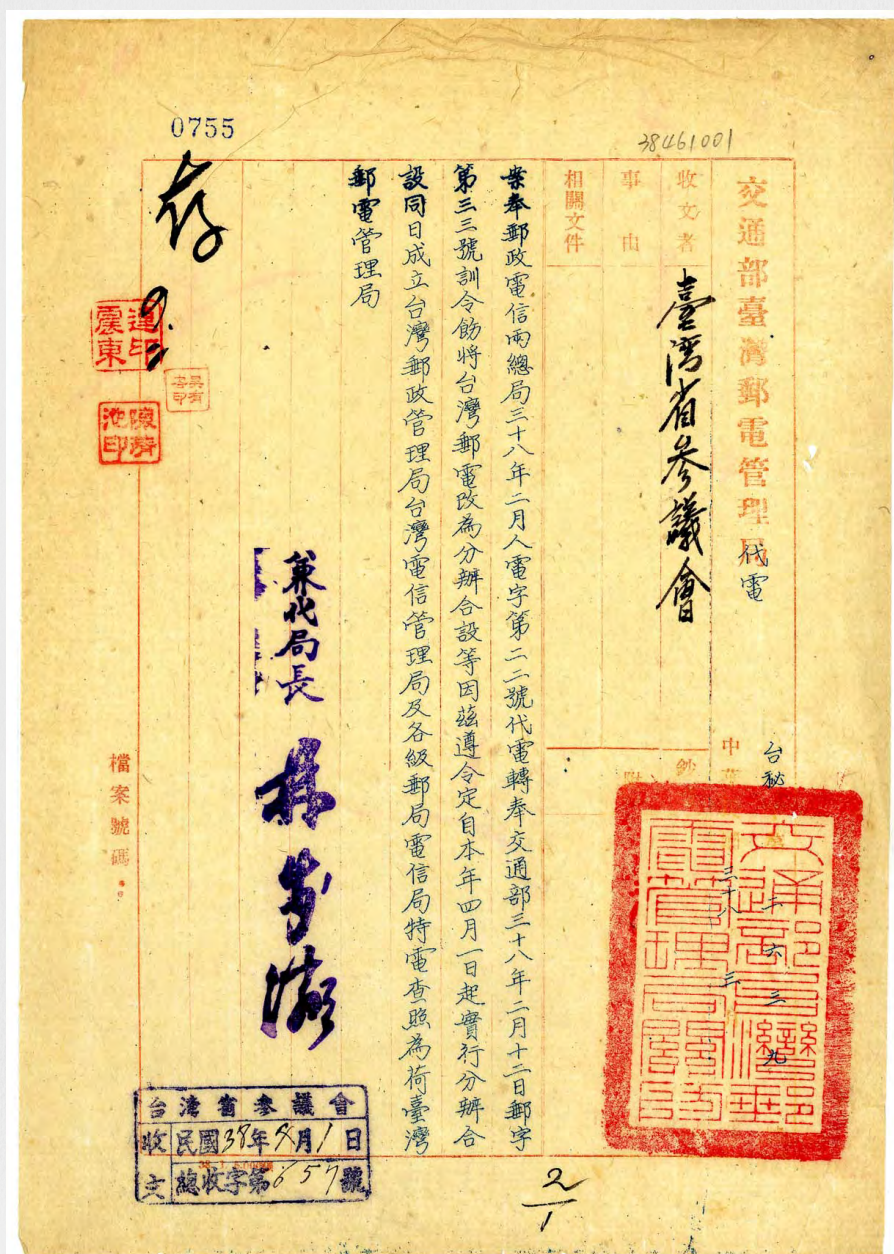 0755
38461001
交通部臺灣郵電管理局 代電
收文者 臺灣省參議會
事由
相關文件
鈔
中
台秘
二六三九
三十八 三
交通部臺灣郵電管理局關防
案奉郵政電信兩總局三十八年二月人電字第二二號代電轉奉交通部三十八年二月十二日郵字
第三三號訓令飭將台灣郵電改為分辦合設等因茲遵令定自本年四月一日起實行分辦合
設同日成立台灣郵政管理局台灣電信管理局及各級郵局電信局特電查照為荷臺灣
郵電管理局
兼代局長 林步瀛
存
連震東印
檔案號碼：
台灣省參議會
收文
民國38年4月1日
總收字第657號
2/1